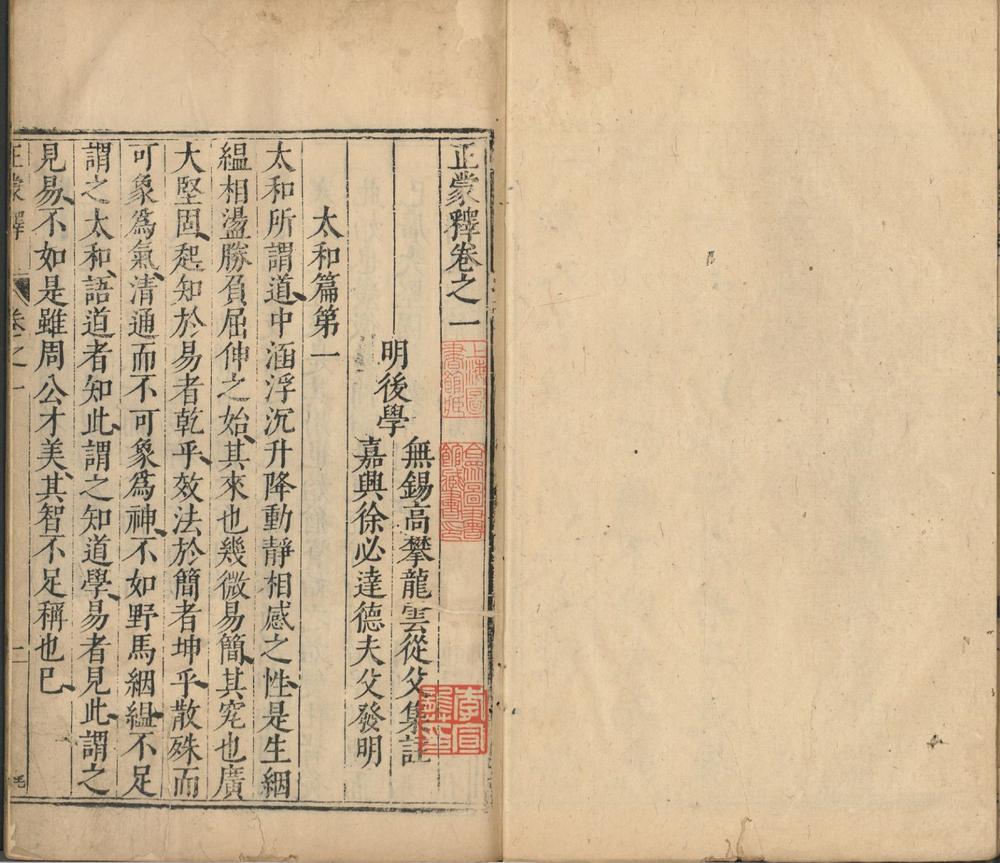 正蒙釋卷之一
明後學
無錫高攀龍雲從父集註
嘉興徐必達德夫父發明
太和篇第一
太和所謂道、中涵浮沉升降動靜相感之性、是生絪
縕相盪勝負屈伸之始、其來也幾微易簡、其究也廣
大堅固、起知於易者乾乎、效法於簡者坤乎、散殊而
可象為氣、清通而不可象為神、不如野馬絪縕、不足
謂之太和、語道者知此、謂之知道、學易者見此、謂之
見易、不如是、雖周公才美、其智不足稱也已、
正蒙釋
卷之一
一
上海圖書館藏